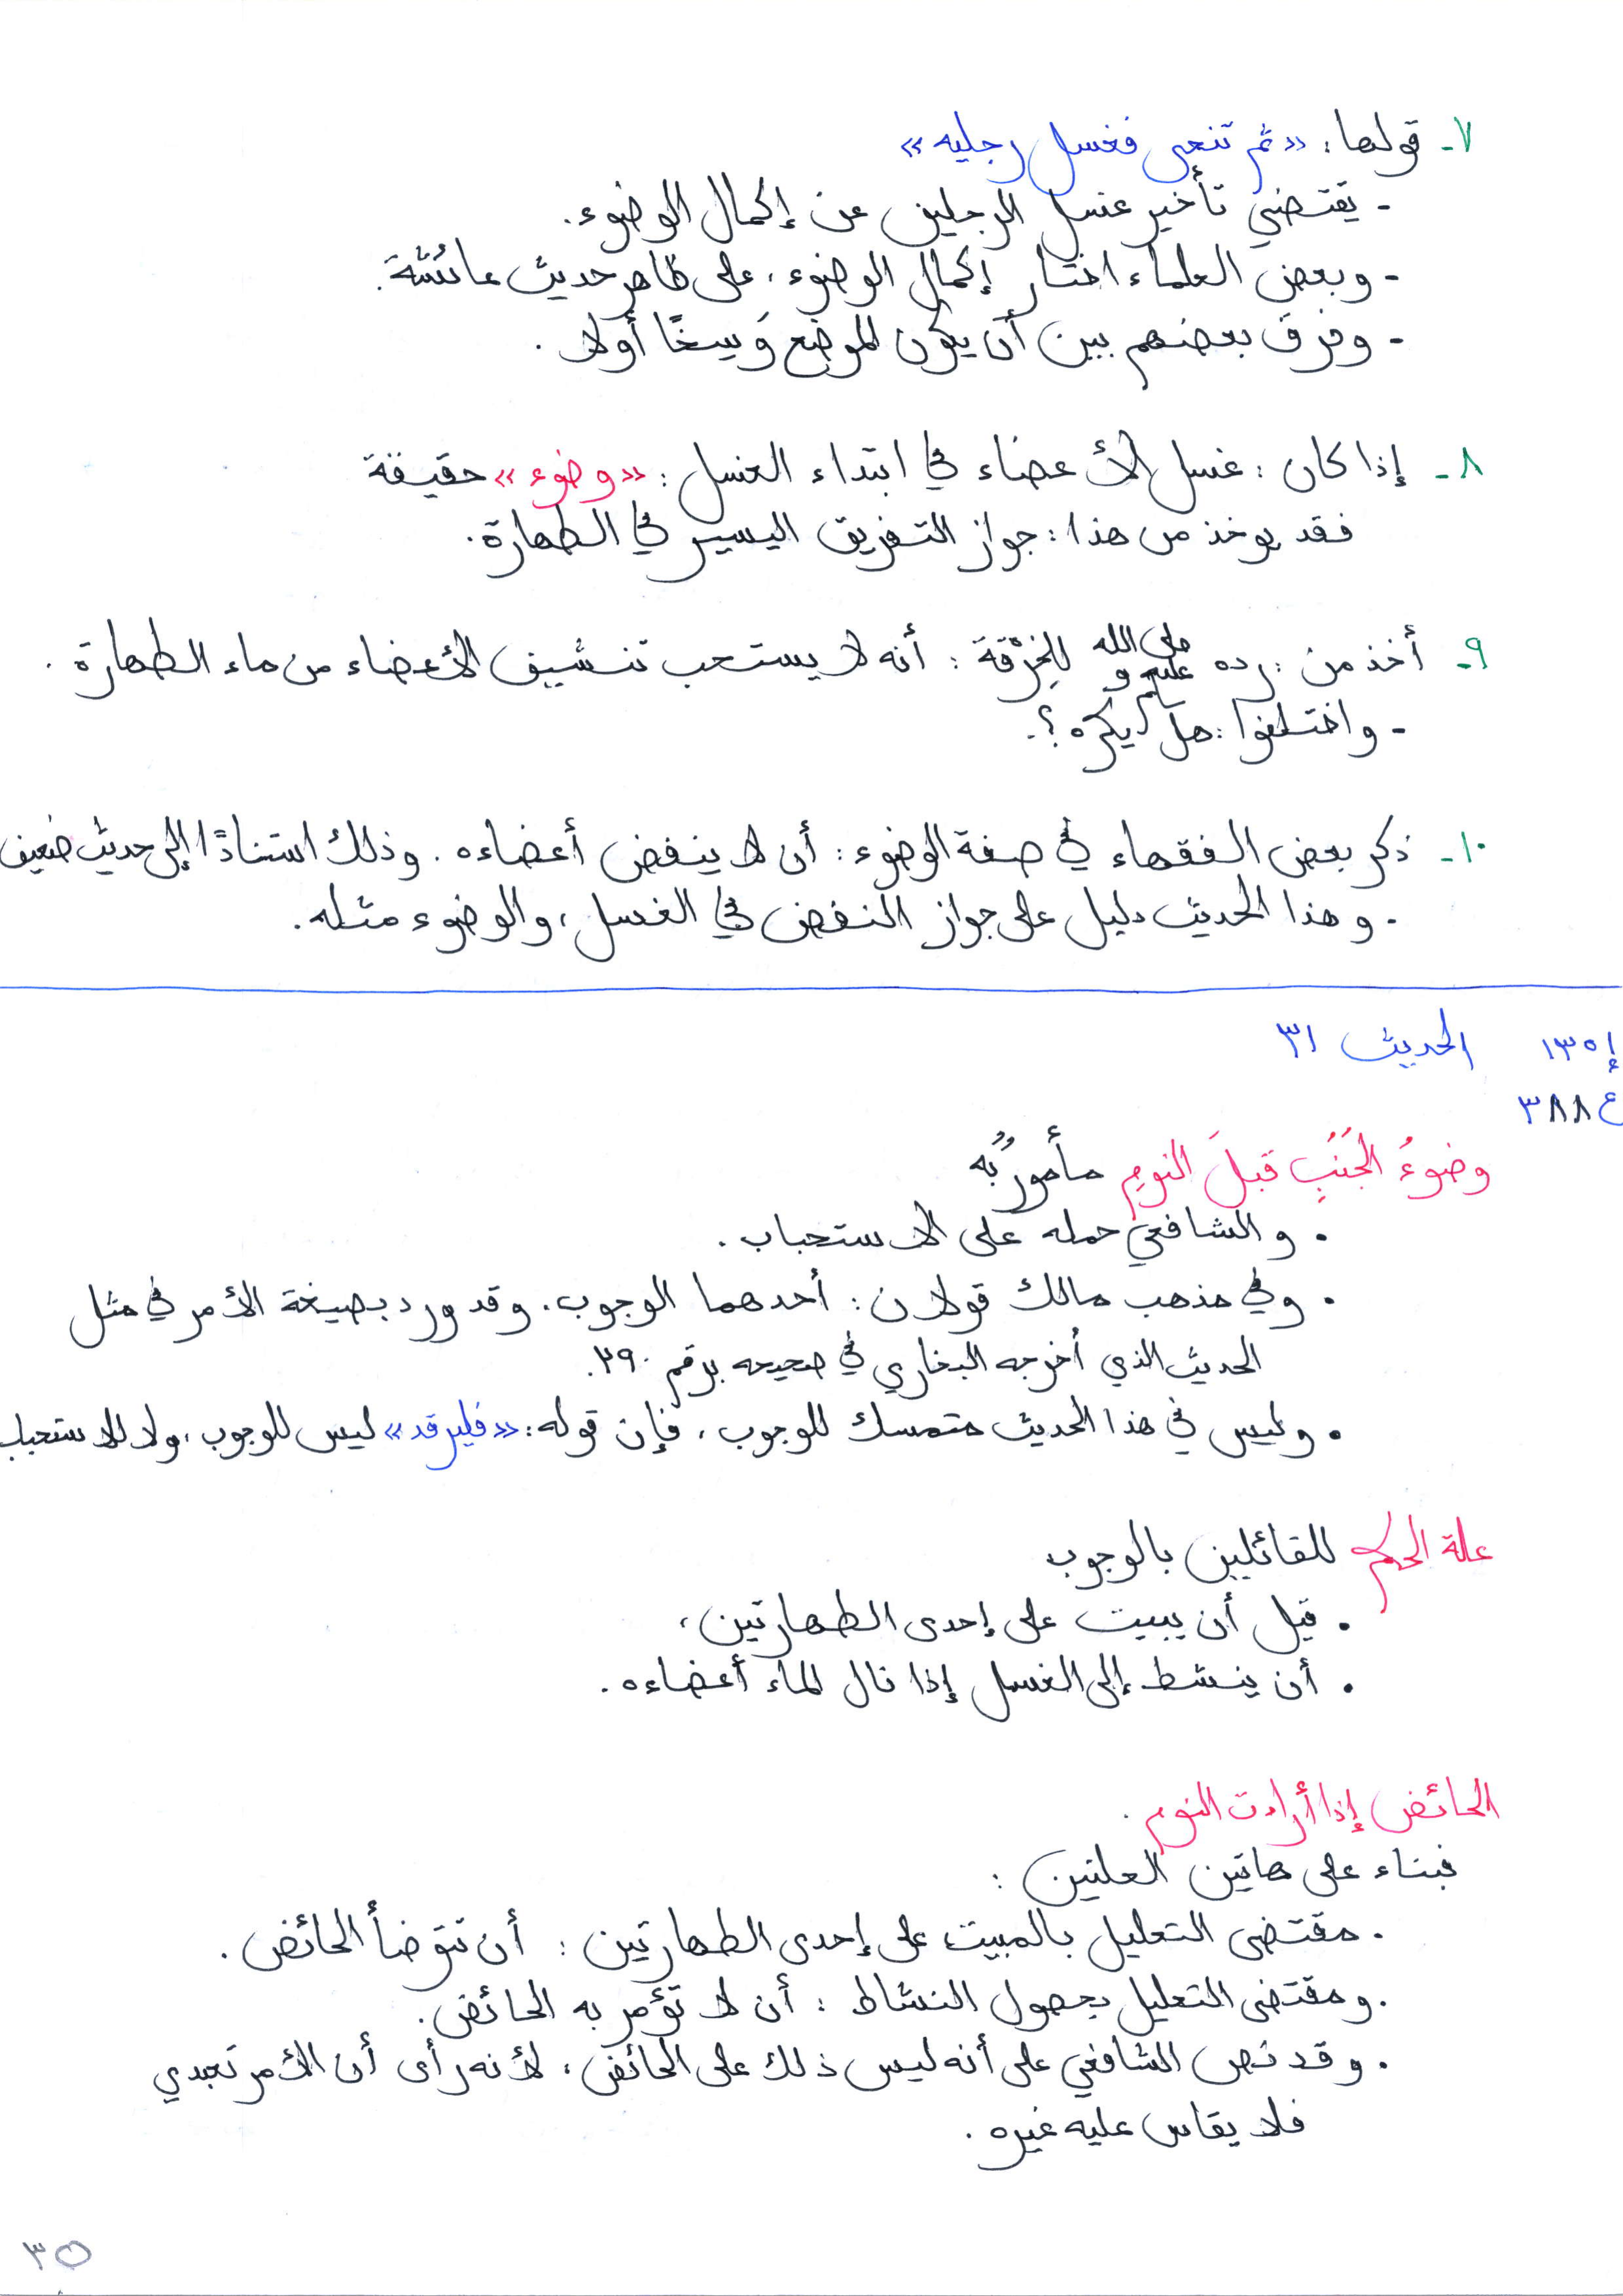 ٧- قولها: «ثم تنحى فغسل رجليه»
- يقتضي تأخير غسل الرجلين عن إكمال الوضوء.
- وبعض العلماء اختار إكمال الوضوء، على ظاهر حديث عائشة.
- وفرق بعضهم بين أن يكون الموضع وَسِخًا أولا.
٨- إذا كان: غسل الأعضاء في ابتداء الغسل: «وضوء» حقيقة
فقد يوخذ من هذا: جواز التفريق اليسير في الطهارة.
٩- أخذ من: رده صلى الله عليه و سلم للخِرْقة: أنه لا يستحب تنشيف الأعضاء من ماء الطهارة.
- واختلفوا: هل يكره؟.
١٠- ذكر بعض الفقهاء في صفة الوضوء: أن لا ينفض أعضاءه. وذلك استنادًا إلى حديث ضعيف
- وهذا الحديث دليل على جواز النفض في الغسل، والوضوء مثله.
إ ١٣٥ الحديث ٣١
ع ٣٨٨
وضوءُ الجُنُبِ قبلَ النومِ مأمورٌ به
• والشافعي حمله على الاستحباب.
• وفي مذهب مالك قولان: أحدهما الوجوب. وقد ورد بصيغة الأمر في مثل
الحديث الذي أخرجه البخاري في صحيحه برقم ٢٩٠.
• وليس في هذا الحديث متمسك للوجوب، فإن قوله: «فليرقد» ليس للوجوب، ولا للاستحباب
علة الحكم للقائلين بالوجوب
• قيل أن يبيت على إحدى الطهارتين،
• أن ينشط إلى الغسل إذا نال الماء أعضاءه.
الحائض إذا أرادت النوم.
فبناء على هاتين العلتين:
• مقتضى التعليل بالمبيت على إحدى الطهارتين: أن تتوضأ الحائض.
• ومقتضى التعليل بحصول النشاط: أن لا تؤمر به الحائض.
• وقد نص الشافعي على أنه ليس ذلك على الحائض، لأنه رأى أن الأمر تعبدي
فلا يقاس عليه غيره.
٣٥